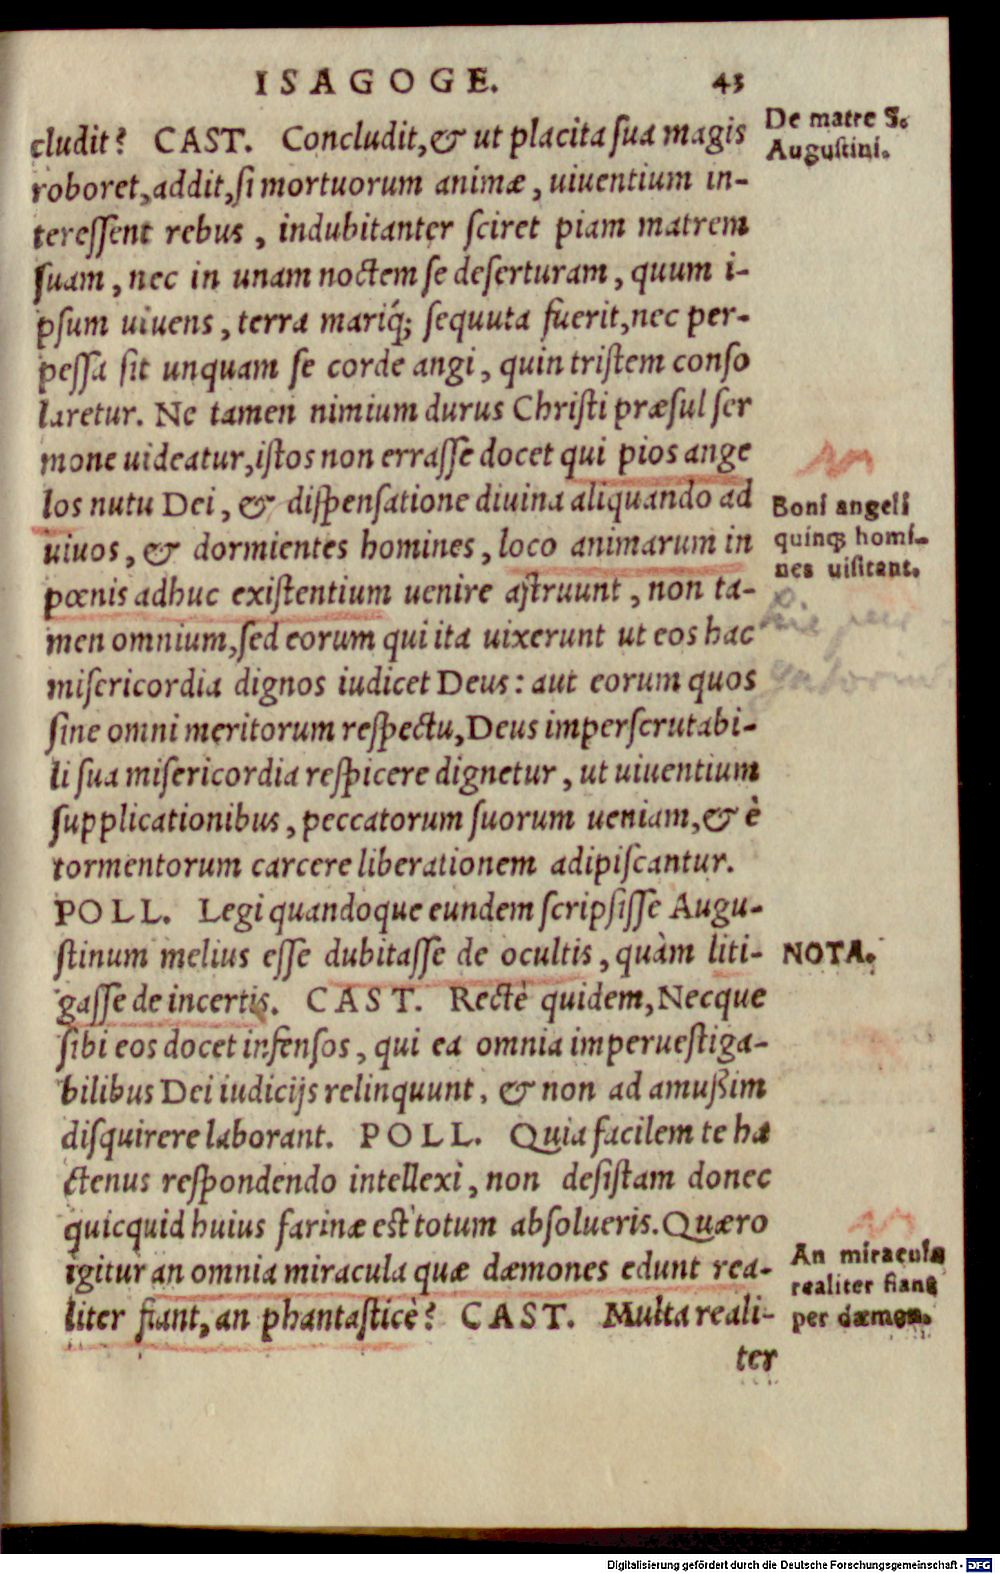 ISAGOGE. 43
cludit? CAST. Concludit, & ut placita sua magis
roboret, addit, si mortuorum animæ, uiuentium in-
teressent rebus, indubitanter sciret piam matrem
suam, nec in unam noctem se deserturam, quum i-
psum uiuens, terra mariq́; sequuta fuerit, nec per-
pessa sit unquam se corde angi, quin tristem conso
laretur. Ne tamen nimium durus Christi præsul ser
mone uideatur, istos non errasse docet qui pios ange
los nutu Dei, & dispensatione diuina aliquando ad
uiuos, & dormientes homines, loco animarum in
pœnis adhuc existentium uenire astruunt, non ta-
men omnium, sed eorum qui ita uixerunt ut eos hac
misericordia dignos iudicet Deus: aut eorum quos
sine omni meritorum respectu, Deus imperscrutabi-
li sua misericordia respicere dignetur, ut uiuentium
supplicationibus, peccatorum suorum ueniam, & è
tormentorum carcere liberationem adipiscantur.
POLL. Legi quandoque eundem scripsisse Augu-
stinum melius esse dubitasse de ocultis, quàm liti-
gasse de incertis. CAST. Rectè quidem, Necque
sibi eos docet infensos, qui ea omnia imperuestiga-
bilibus Dei iudicijs relinquunt, & non ad amußim
disquirere laborant. POLL. Quia facilem te ha
ctenus respondendo intellexi, non desistam donec
quicquid huius farinæ est totum absolueris. Quæro
igitur an omnia miracula quæ dæmones edunt rea-
liter fiant, an phantasticè? CAST. Multa reali-
ter
De matre S.
Augustini.
Boni angeli
quinq; homi-
nes uisitant.
NOTA.
An miracula
realiter fiant
per dæmon.
Digitalisierung gefördert durch die Deutsche Forschungsgemeinschaft - DFG